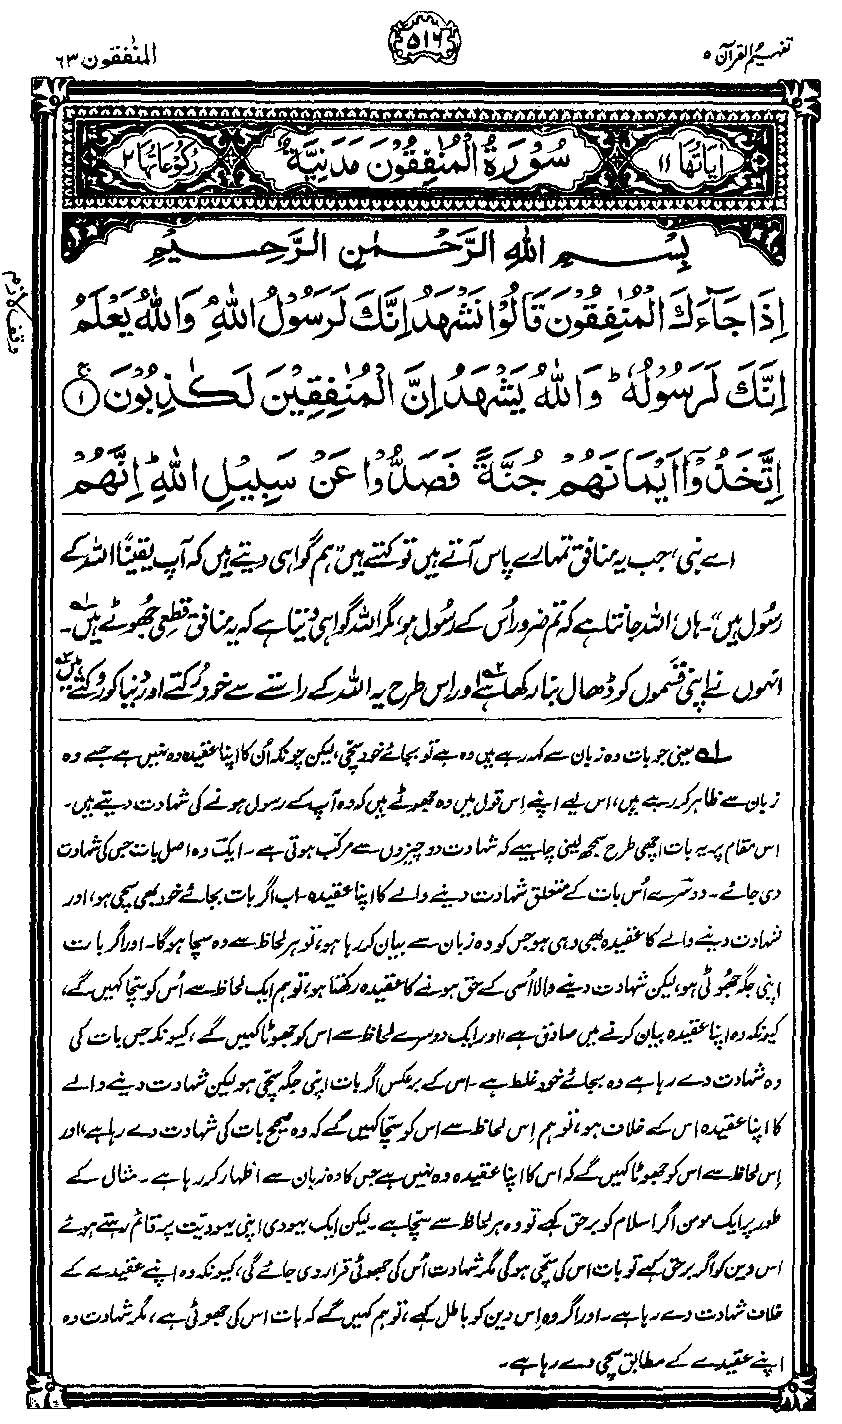 تفہیم القرآن ۵
۵۱۶
المنٰفقون ۶۳
اٰیاتھا ۱۱
سُوْرَةُ الْمُنٰفِقُوْنَ مَدَنِيَّةٌ
رُكُوْعَاتُهَا ۲
بِسْمِ اللهِ الرَّحْمٰنِ الرَّحِيْمِ
اِذَا جَآءَكَ الْمُنٰفِقُوْنَ قَالُوْا نَشْهَدُ اِنَّكَ لَرَسُوْلُ اللهِ ۘ وَاللهُ يَعْلَمُ
وقف لازم
اِنَّكَ لَرَسُوْلُهٗ ؕ وَاللهُ يَشْهَدُ اِنَّ الْمُنٰفِقِيْنَ لَكٰذِبُوْنَ ۚ ۱
اِتَّخَذُوْٓا اَيْمَانَهُمْ جُنَّةً فَصَدُّوْا عَنْ سَبِيْلِ اللهِ ؕ اِنَّهُمْ
اے نبیؐ، جب یہ منافق تمہارے پاس آتے ہیں تو کہتے ہیں "ہم گواہی دیتے ہیں کہ آپ یقیناً اللہ کے
رسُول ہیں"۔ ہاں، اللہ جانتا ہے کہ تم ضرور اُس کے رسُول ہو، مگر اللہ گواہی دیتا ہے کہ یہ منافق قطعی جُھوٹے ہیں۱؎۔
انہوں نے اپنی قسموں کو ڈھال بنا رکھا ہے۲؎ اور اس طرح یہ اللہ کے راستے سے خود رُکتے اور دُنیا کو روکتے ہیں۳؎
۱؎ یعنی جو بات وہ زبان سے کہہ رہے ہیں وہ ہے تو بجائے خود سچی، لیکن چونکہ اُن کا اپنا عقیدہ وہ نہیں ہے جسے وہ
زبان سے ظاہر کر رہے ہیں، اس لیے اپنے اِس قول میں وہ جھوٹے ہیں کہ وہ آپ کے رسول ہونے کی شہادت دیتے ہیں۔
اس مقام پر یہ بات اچھی طرح سمجھ لینی چاہیے کہ شہادت دو چیزوں سے مرکب ہوتی ہے۔ ایک وہ اصل بات جس کی شہادت
دی جائے۔ دوسرے اُس بات کے متعلق شہادت دینے والے کا اپنا عقیدہ۔ اب اگر بات بجائے خود بھی سچی ہو، اور
شہادت دینے والے کا عقیدہ بھی وہی ہو جس کو وہ زبان سے بیان کر رہا ہو، تو ہر لحاظ سے وہ سچا ہوگا۔ اور اگر بات
اپنی جگہ جھوٹی ہو، لیکن شہادت دینے والا اُسی کے حق ہونے کا عقیدہ رکھتا ہو، تو ہم ایک لحاظ سے اُس کو سچا کہیں گے،
کیونکہ وہ اپنا عقیدہ بیان کرنے میں صادق ہے، اور ایک دوسرے لحاظ سے اس کو جھوٹا کہیں گے، کیونکہ جس بات کی
وہ شہادت دے رہا ہے وہ بجائے خود غلط ہے۔ اس کے برعکس اگر بات اپنی جگہ سچی ہو لیکن شہادت دینے والے
کا اپنا عقیدہ اس کے خلاف ہو، تو ہم اِس لحاظ سے اس کو سچا کہیں گے کہ وہ صحیح بات کی شہادت دے رہا ہے، اور
اِس لحاظ سے اس کو جھوٹا کہیں گے کہ اس کا اپنا عقیدہ وہ نہیں ہے جس کا وہ زبان سے اظہار کر رہا ہے۔ مثال کے
طور پر ایک مومن اگر اسلام کو برحق کہے تو وہ ہر لحاظ سے سچا ہے۔ لیکن ایک یہودی اپنی یہودیت پر قائم رہتے ہوئے
اس دین کو اگر برحق کہے تو بات اس کی سچی ہوگی مگر شہادت اُس کی جھوٹی قرار دی جائے گی، کیونکہ وہ اپنے عقیدے کے
خلاف شہادت دے رہا ہے۔ اور اگر وہ اِس دین کو باطل کہے، تو ہم کہیں گے کہ بات اس کی جھوٹی ہے، مگر شہادت وہ
اپنے عقیدے کے مطابق سچی دے رہا ہے۔